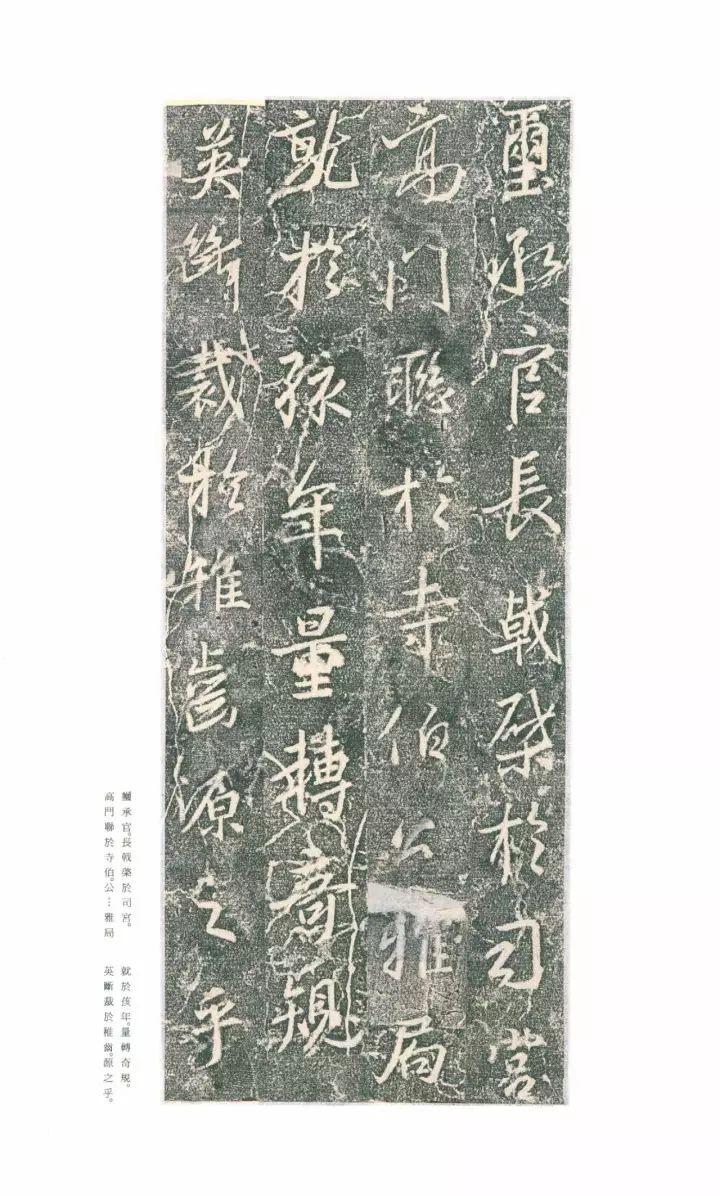 璽承官長戟榮於司宮
高門聯於寺伯公雅局
就於孩年量轉奇規
英斷裁於稚齒源之乎
璽承官。長戟榮於司宮。
高門聯於寺伯。公…雅局
就於孩年。量轉奇規。
英斷裁於稚齒。源之乎。